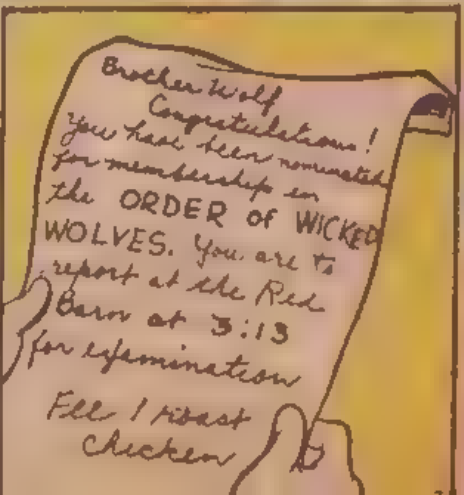 Brother Wolf
Congratulations!
you have been nominated
for membership in
the ORDER of WICKED
WOLVES. You are to
report at the Red
Barn at 3:13
for examination
Fee 1 roast
chicken